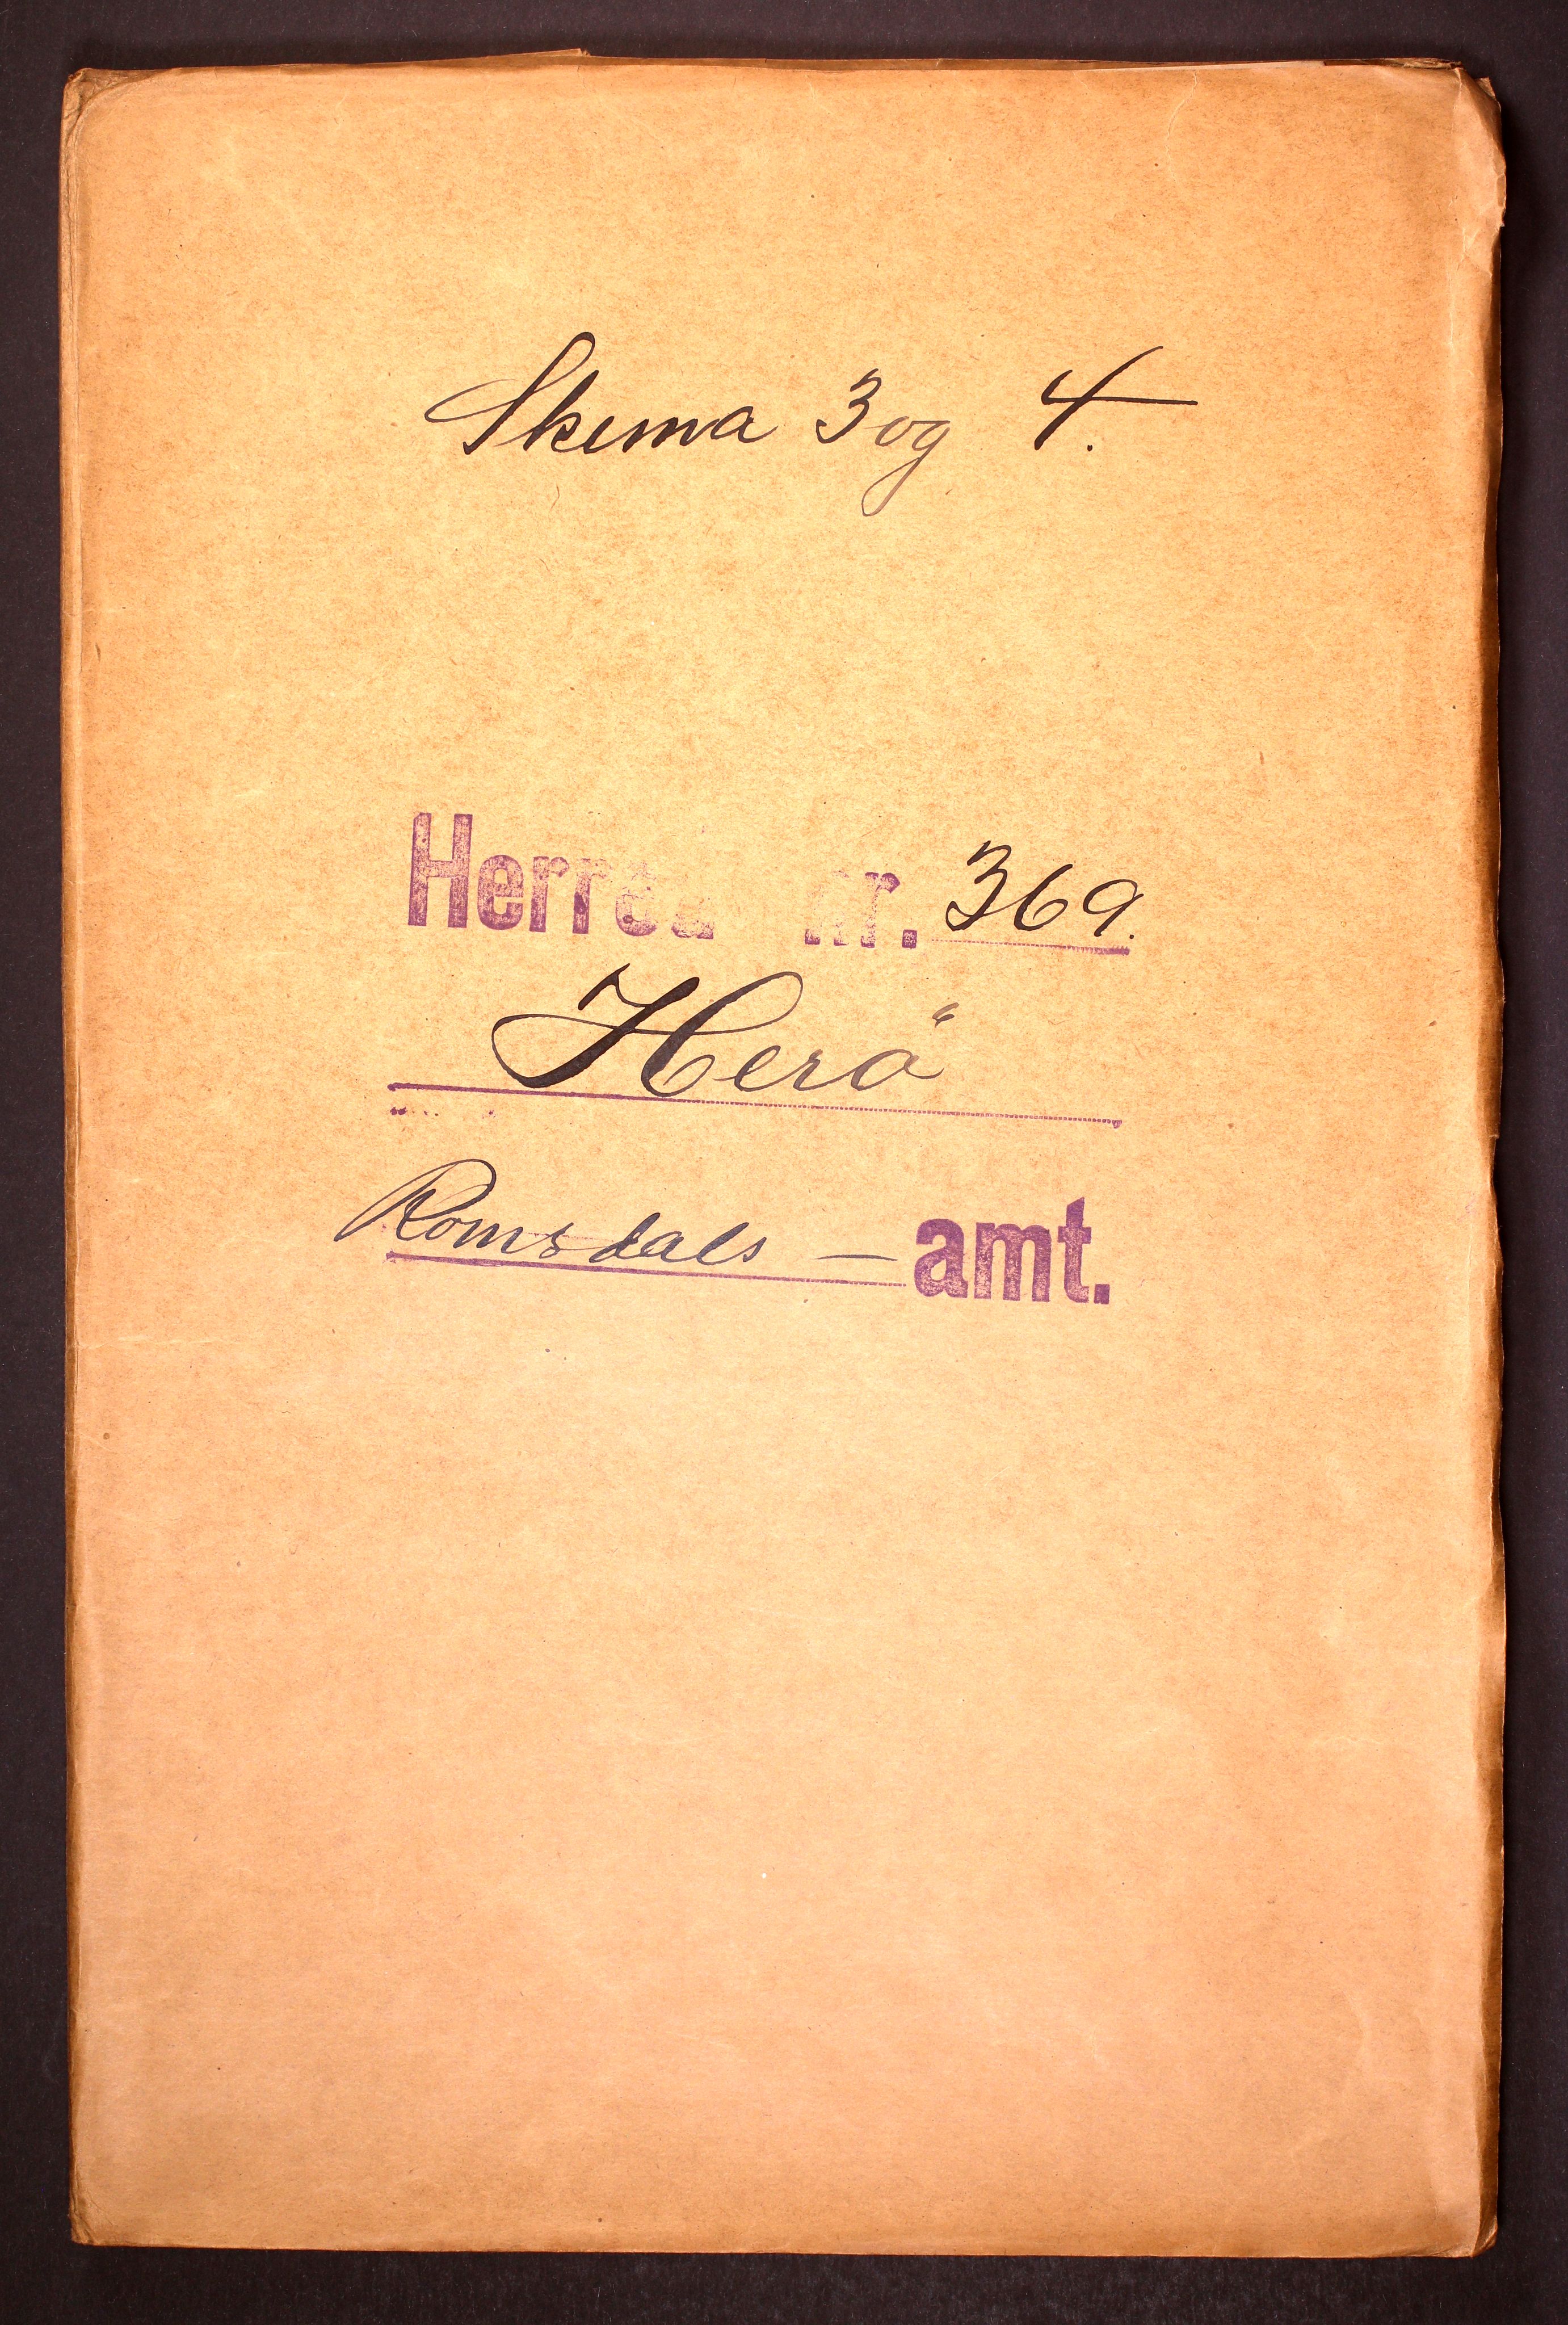 Skema 3 og 4.
Herred nr. 369.
Herö
Romsdals – amt.